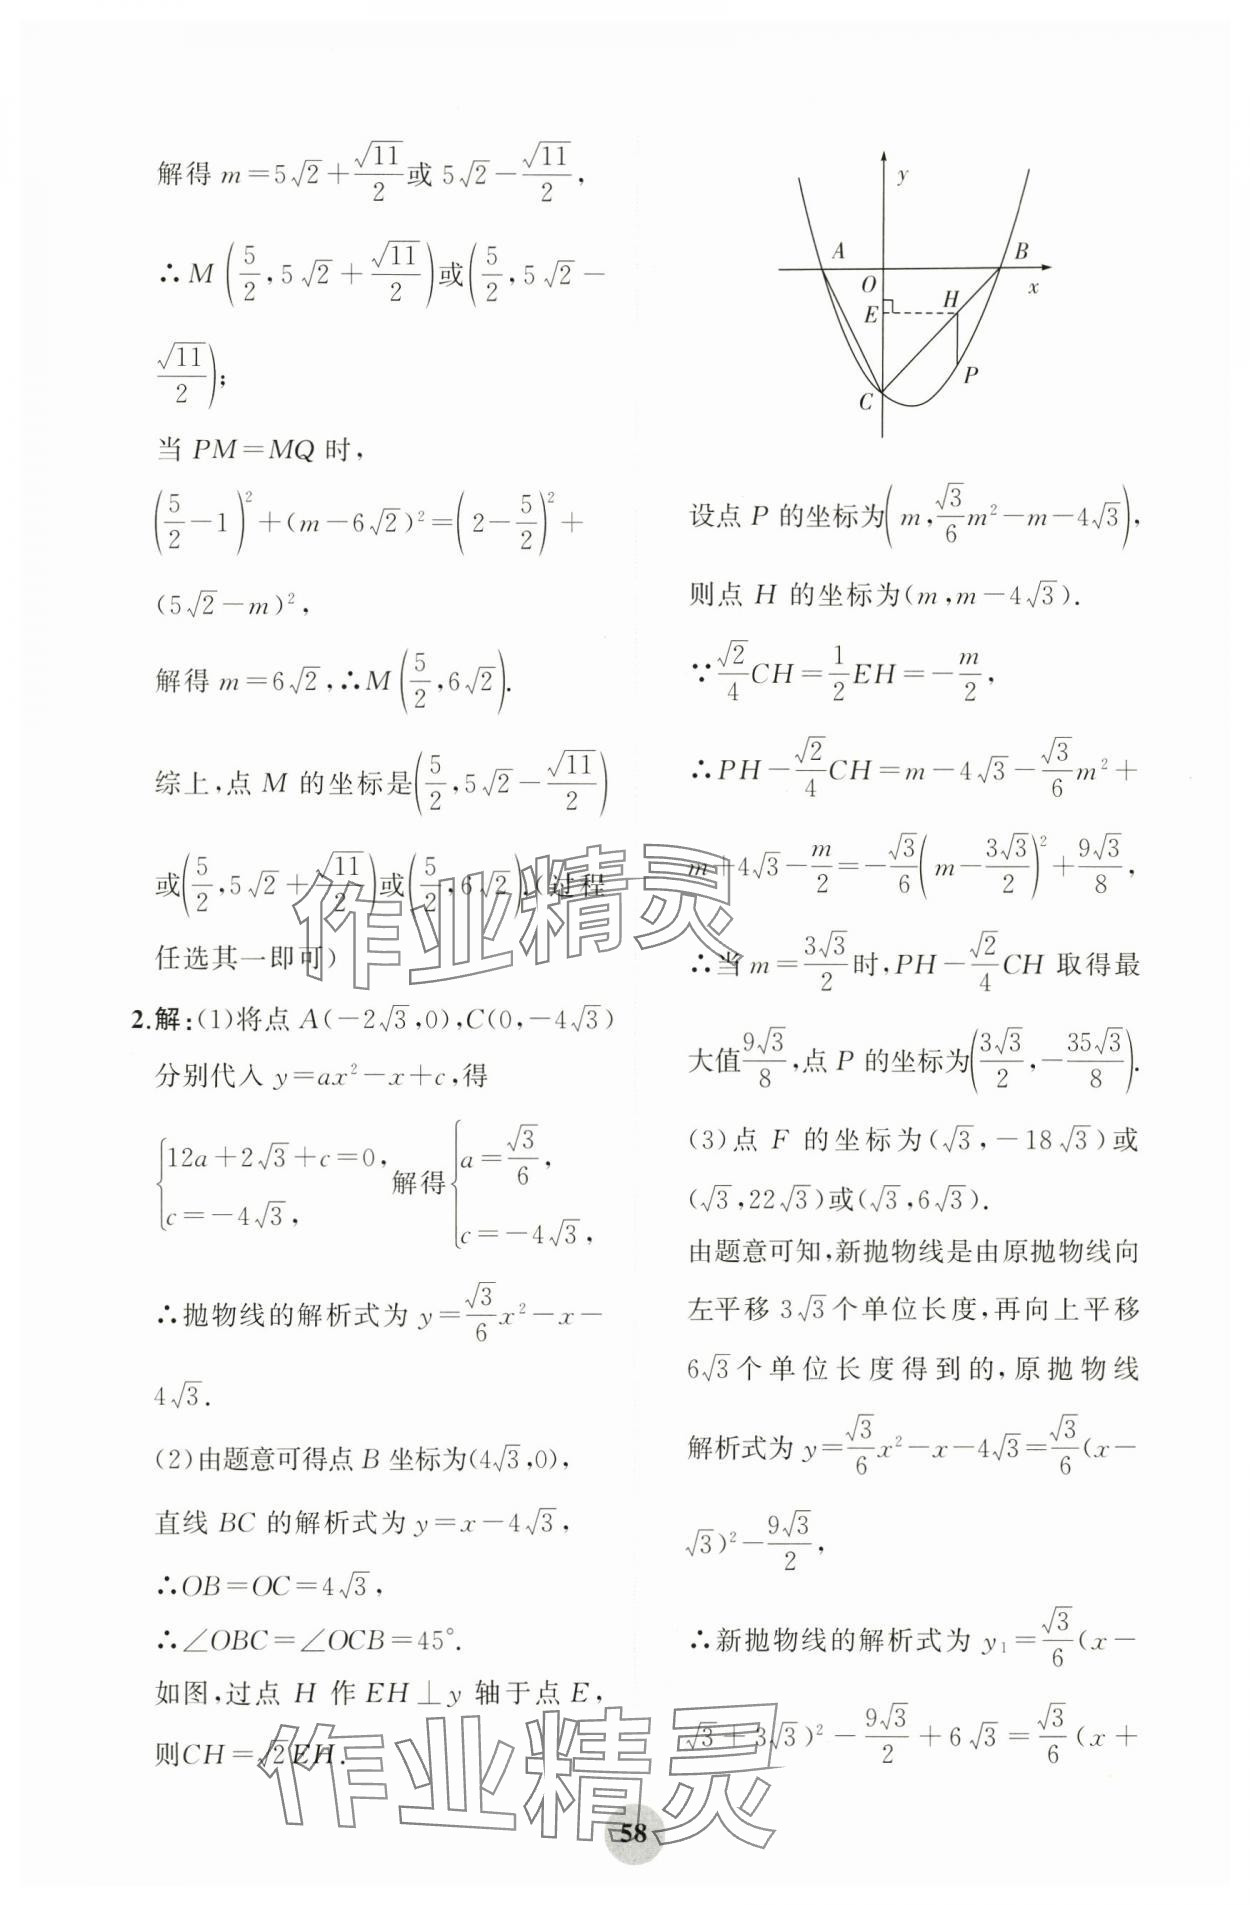 解得 m=5√2+√11/2或 5√2-√11/2,
∴M(5/2,5√2+√11/2)或(5/2,5√2-
√11/2);
当 PM=MQ 时,
(5/2-1)²+(m-6√2)²=(2-5/2)²+
(5√2-m)²,
解得 m=6√2,∴M(5/2,6√2).
综上,点 M 的坐标是(5/2,5√2-√11/2)
或(5/2,5√2+√11/2)或(5/2,6√2).(过程
任选其一即可)
2.解:(1)将点 A(-2√3,0),C(0,-4√3)
分别代入 y=ax²-x+c,得
{12a+2√3+c=0, c=-4√3, 解得{a=√3/6, c=-4√3,
∴抛物线的解析式为 y=√3/6x²-x-
4√3.
(2)由题意可得点 B 坐标为(4√3,0),
直线 BC 的解析式为 y=x-4√3,
∴OB=OC=4√3,
∴∠OBC=∠OCB=45°.
如图,过点 H 作 EH⊥y 轴于点 E,
则CH=√2EH.
y
A
B
O
x
E
H
P
C
设点 P 的坐标为(m,√3/6m²-m-4√3),
则点 H 的坐标为(m,m-4√3).
∵√2/4CH=1/2EH=-m/2,
∴PH-√2/4CH=m-4√3-√3/6m²+
m+4√3-m/2=-√3/6(m-3√3/2)²+9√3/8,
∴当 m=3√3/2时,PH-√2/4CH 取得最
大值9√3/8,点 P 的坐标为(3√3/2,-35√3/8).
(3)点 F 的坐标为(√3,-18√3)或
(√3,22√3)或(√3,6√3).
由题意可知,新抛物线是由原抛物线向
左平移 3√3个单位长度,再向上平移
6√3个单位长度得到的,原抛物线
解析式为 y=√3/6x²-x-4√3=√3/6(x-
√3)²-9√3/2,
∴新抛物线的解析式为 y₁=√3/6(x-
√3+3√3)²-9√3/2+6√3=√3/6(x+
作业精灵
作业精灵
58